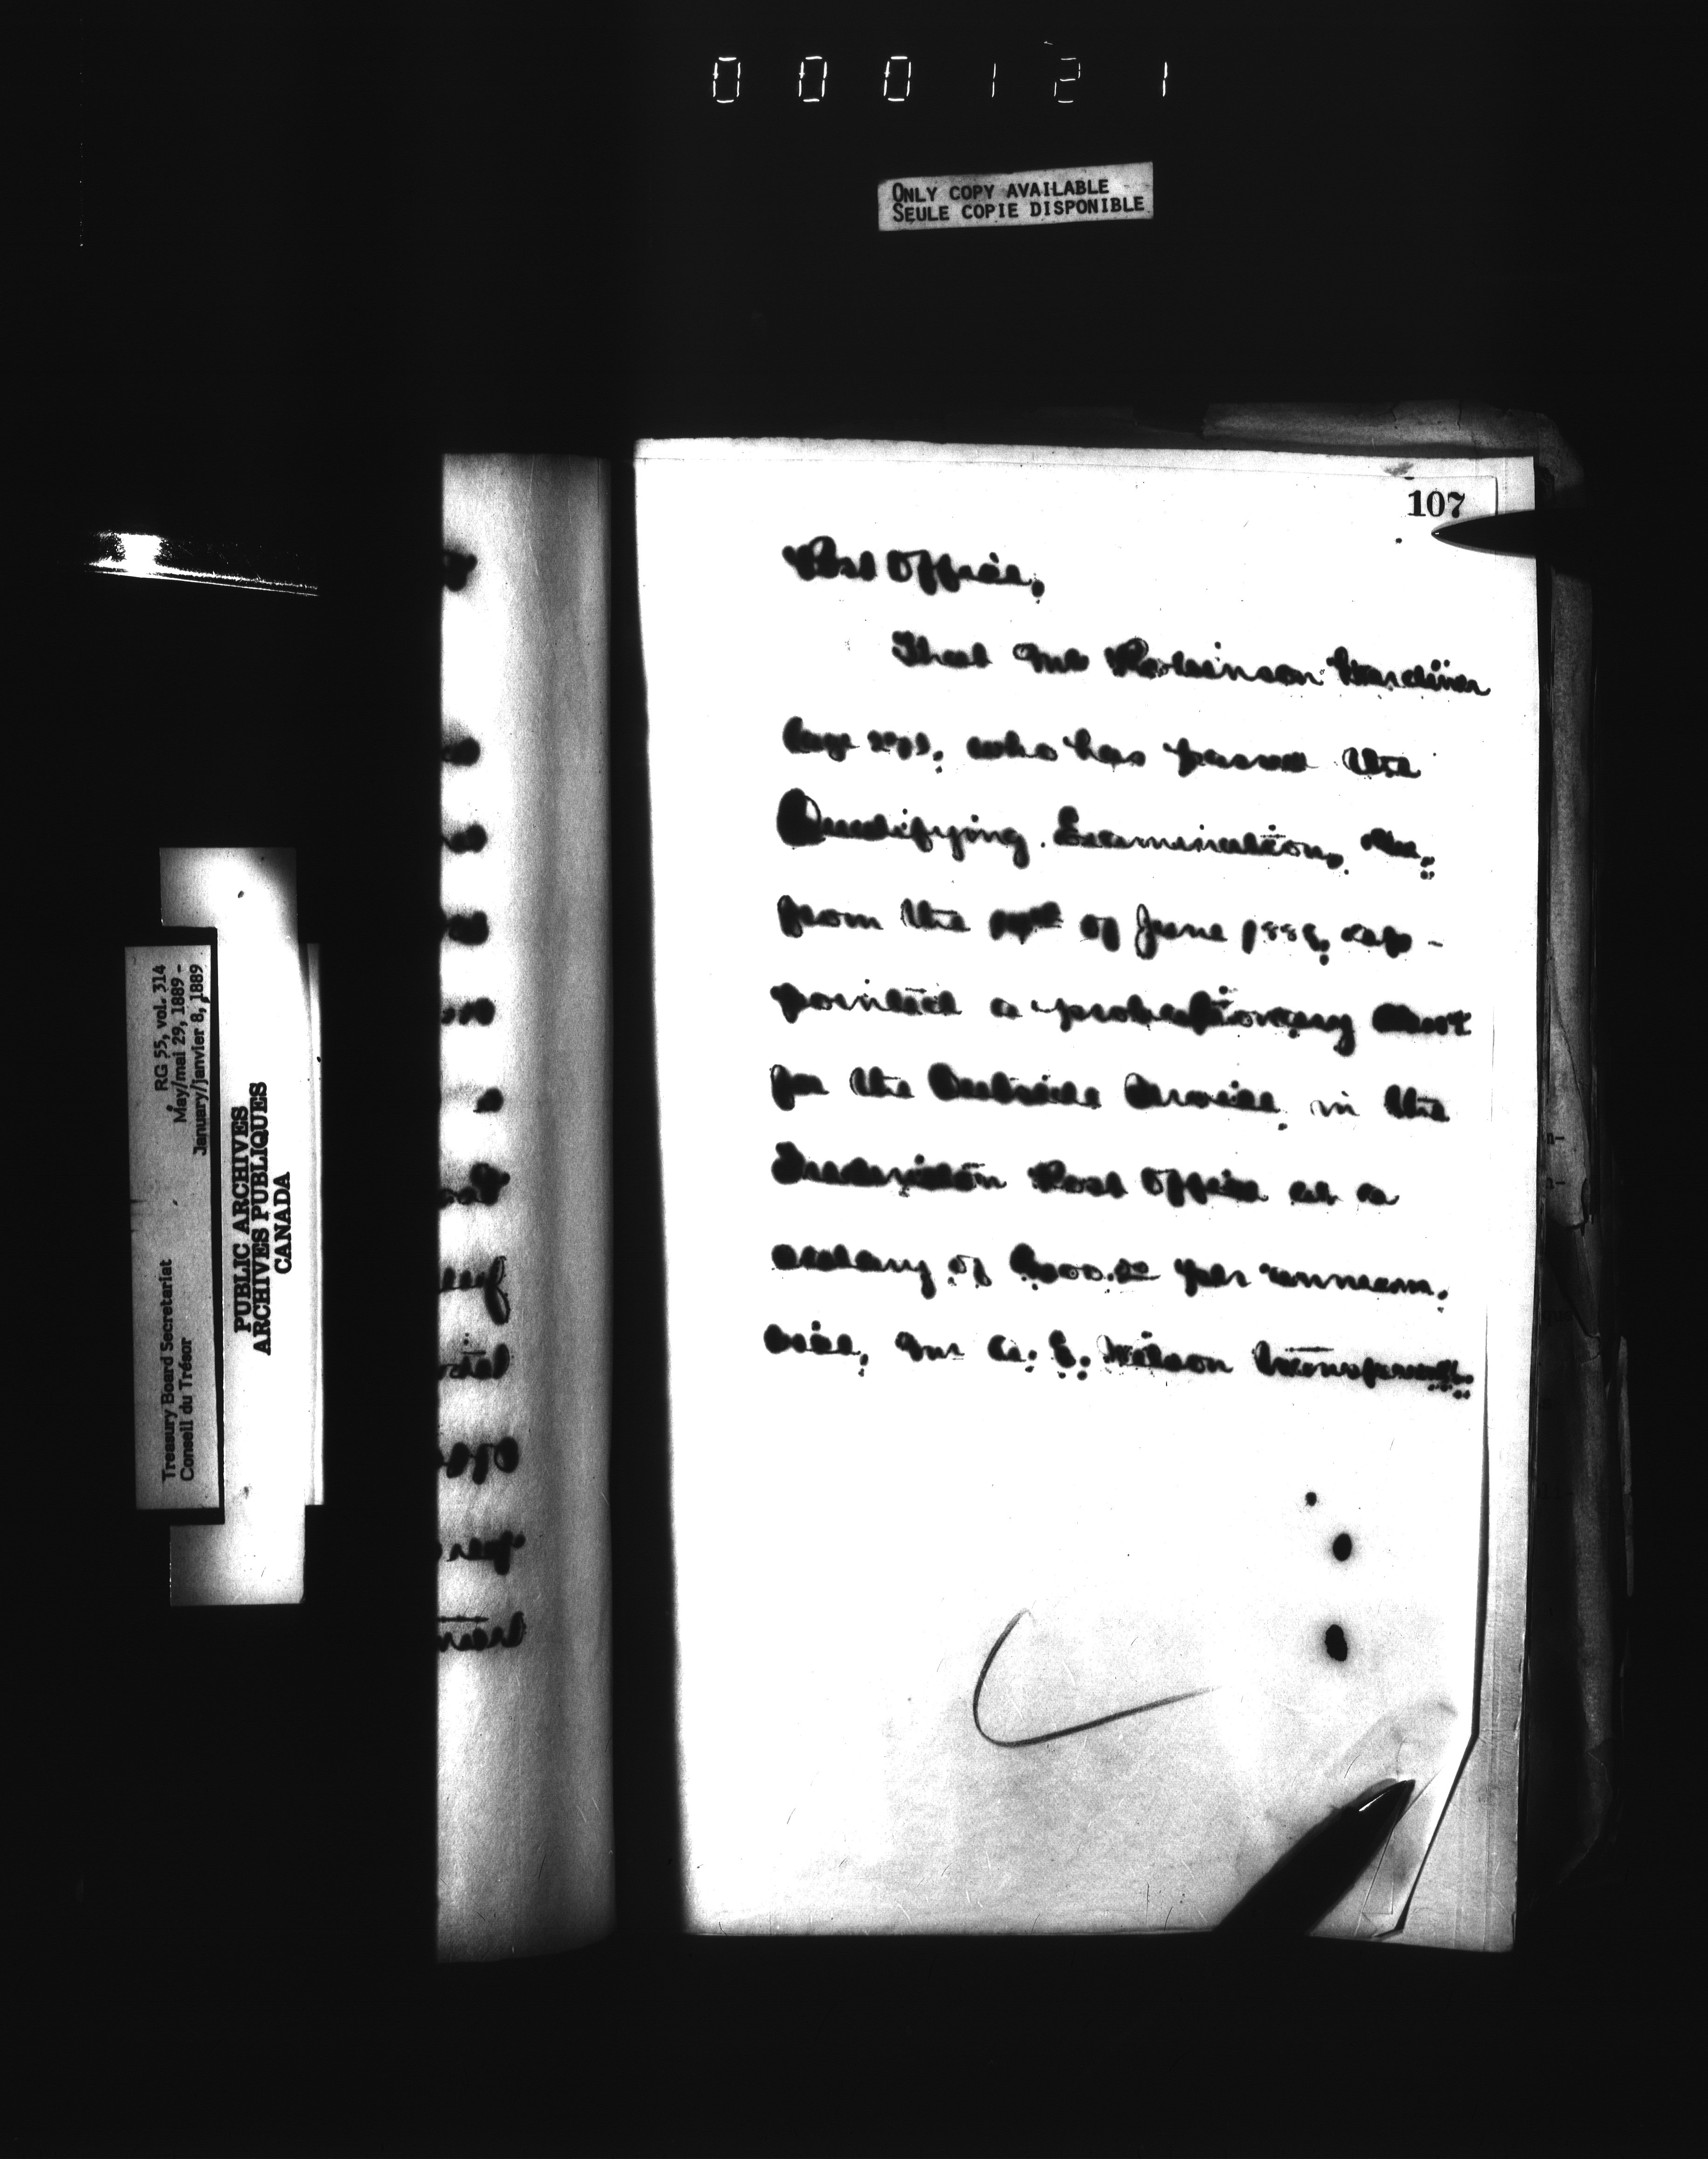 000121
ONLY COPY AVAILABLE
SEULE COPIE DISPONIBLE
RG 55, vol. 314
May/mai 29, 1889 -
January/janvier 8, 1889
Treasury Board Secretariat
Conseil du Trésor
PUBLIC ARCHIVES
ARCHIVES PUBLIQUES
CANADA
107
Post Office,
That Mr Robinson
who has passed the
Qualifying Examination, be,
from the of June 1888, ap-
pointed a probationary
for the Outside Service, in the
Fredericton Post Office at a
salary of per annum.
vice, Mr A. E. Wilson transferred.